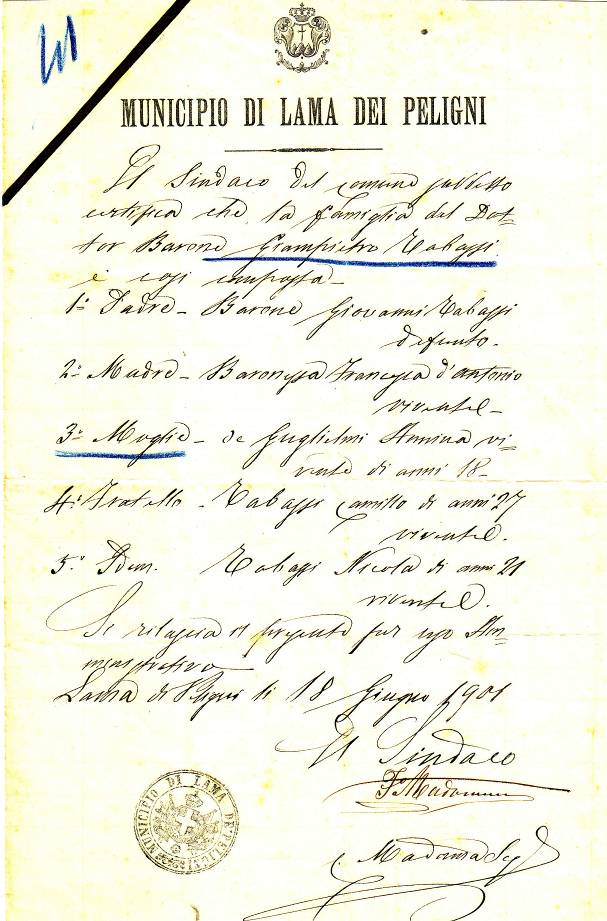 MUNICIPIO DI LAMA DEI PELIGNI
Il Sindaco del comune suddetto
certifica che la famiglia del Dot-
tor Barone Giampietro Tabassi
è così composta -
1º Padre - Barone Giovanni Tabassi
defunto.
2º Madre - Baronessa Francesca d'Antonio
vivente -
3º Moglie - de Guglielmi Annina vi-
vente di anni 18 -
4º Fratello - Tabassi Camillo di anni 27
vivente.
5º Idem. Tabassi Nicola di anni 21
vivente.
Si rilascia il presente per uso Am-
ministrativo
Lama dei Peligni li 18 Giugno 1901
Il Sindaco
Madonna
MUNICIPIO DI LAMA DE' PELIGNI
Madonna